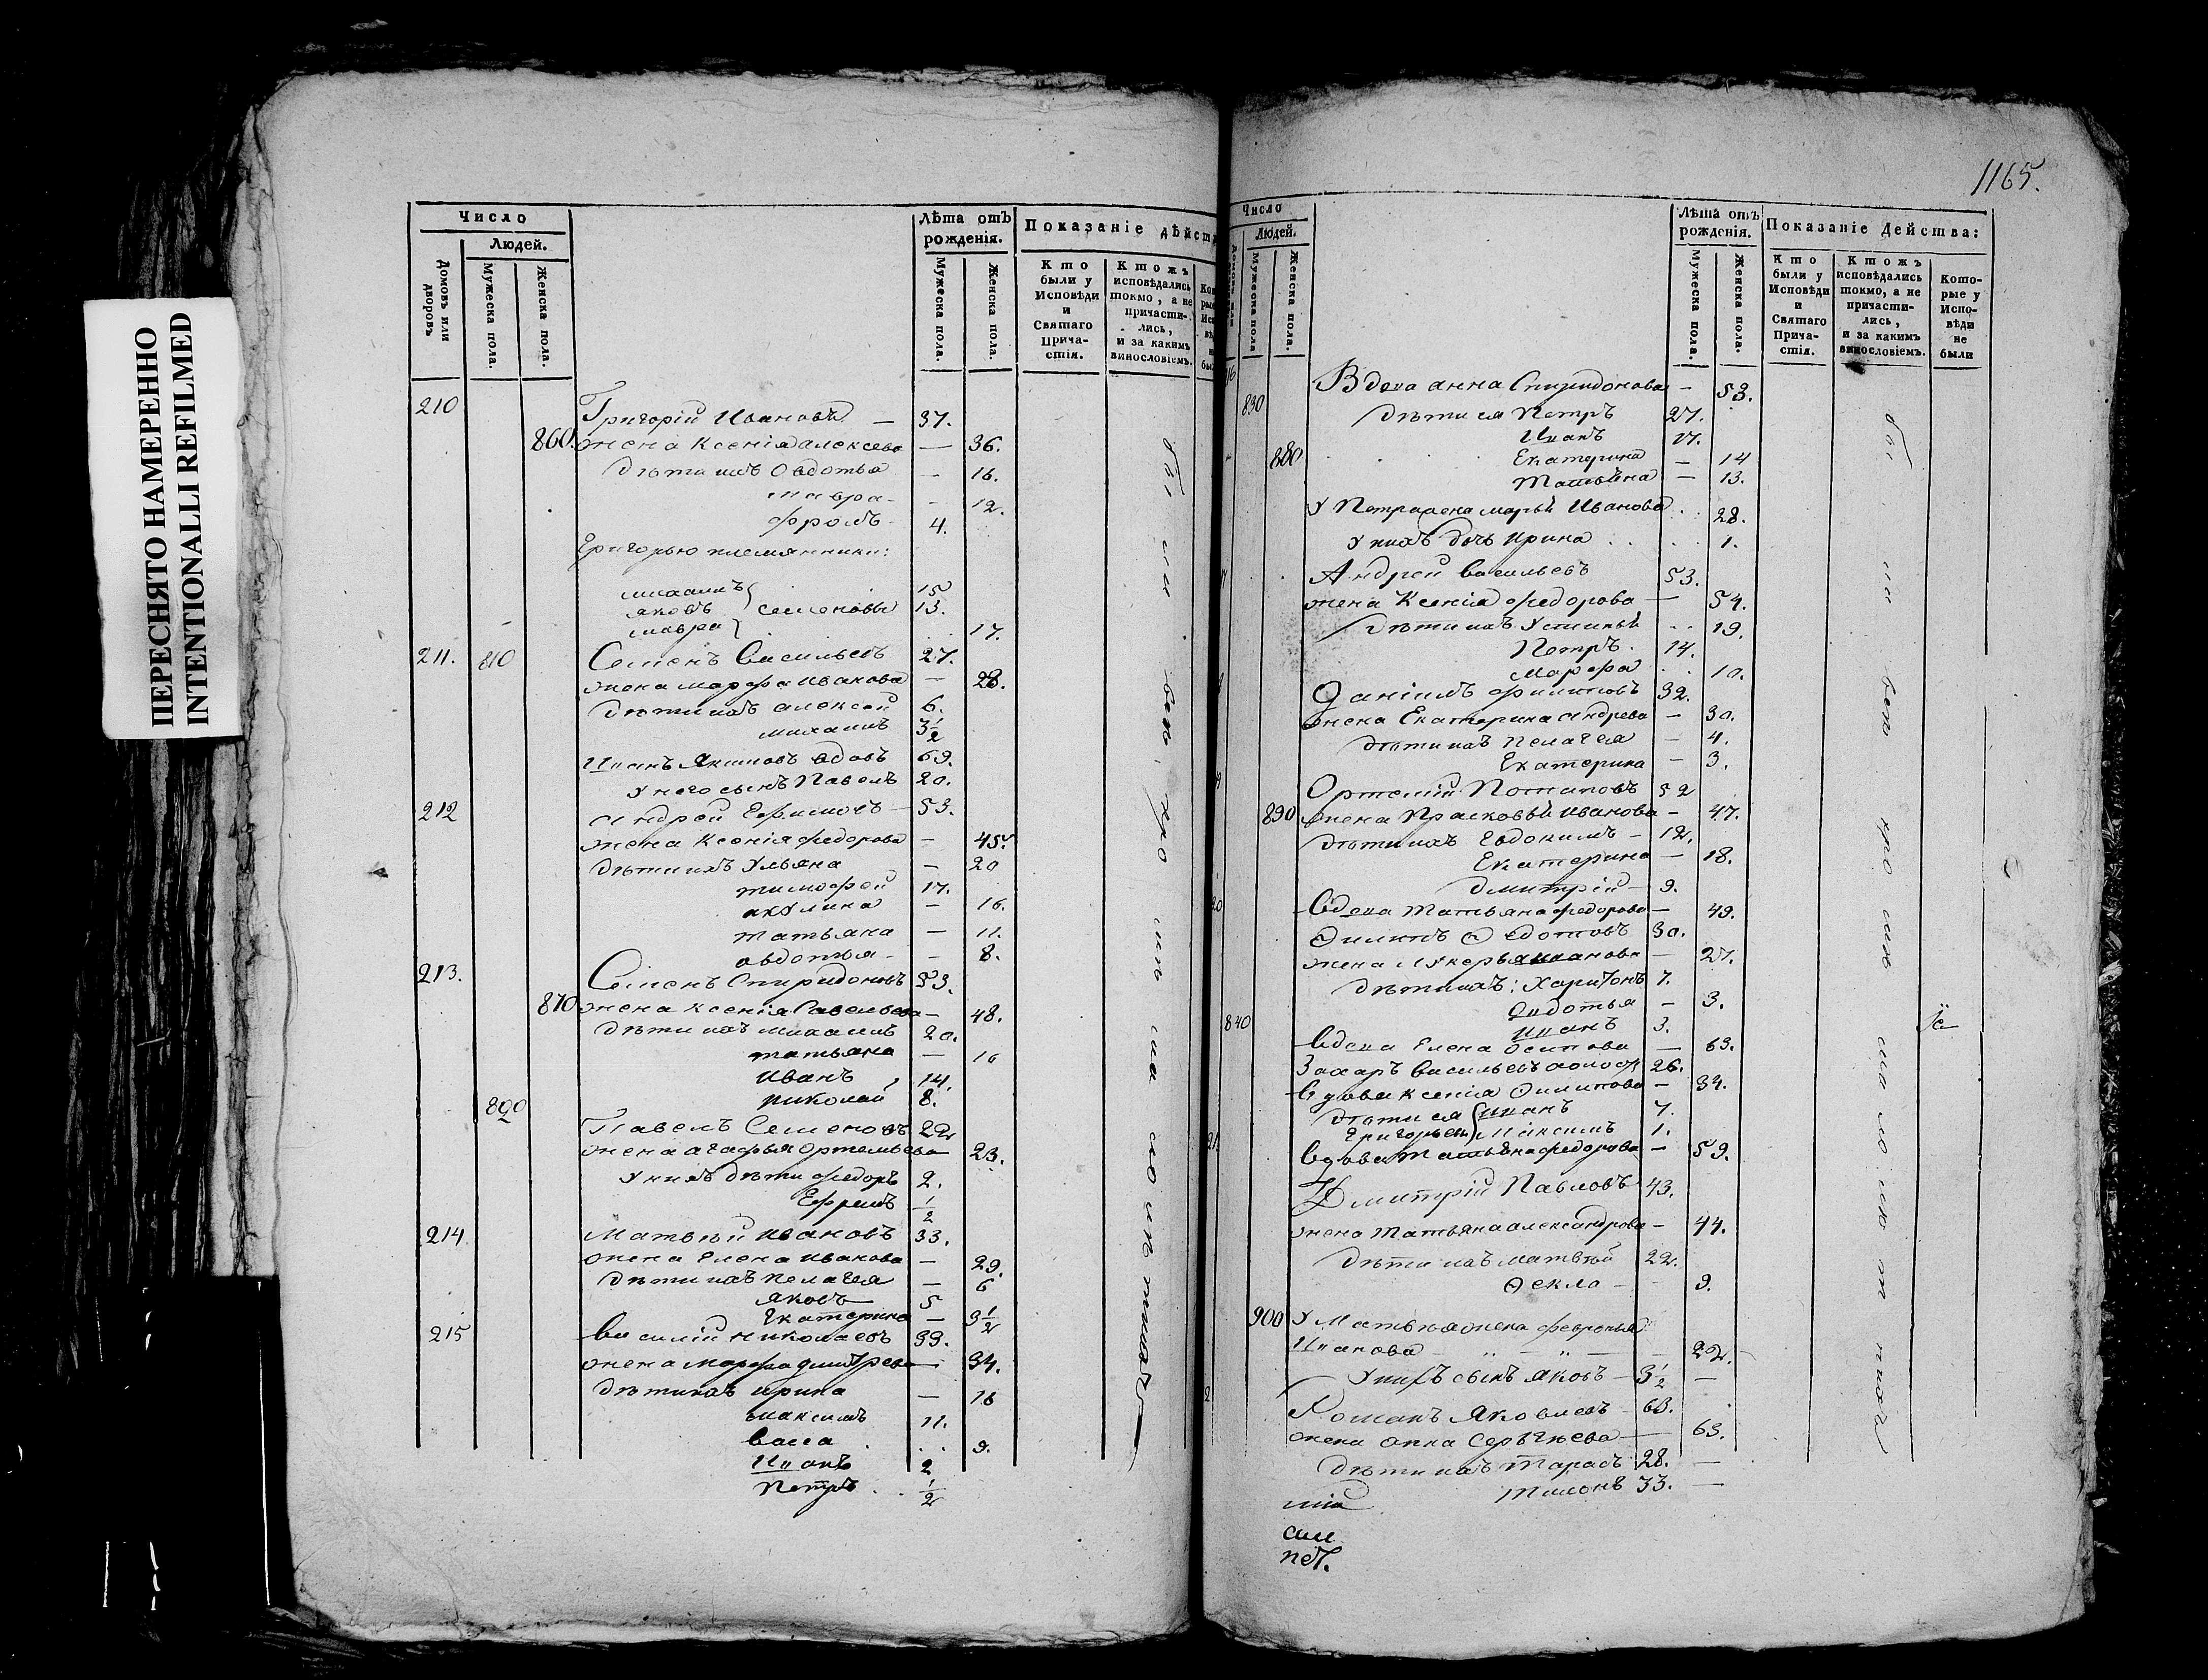 ПЕРЕСНЯТО НАМЕРЕННО
INTENTIONALLI REFILMED
Число
Людей.
Домовъ или дворовъ
Мужеска пола.
Женска пола.
Лѣта отъ рожденія.
Мужеска пола.
Женска пола.
Показаніе дѣйст
Кто были у Исповѣди и Святаго Прича-стія.
Ктожъ исповѣдались токмо, а не причасти-лись, и за какимъ винословіемъ.
210 Григорій Ивановъ — 37.
860. жена Ксенія алексева — 36.
дѣти ихъ Овдотья — 16.
мавра — 12.
фролъ 4.
Григорью племянники:
михаилъ 15
яковъ семеновы 13.
мавра 17.
211. 810 Семенъ Васильевъ 27.
жена марфа иванова — 28.
дѣти ихъ алексей 6.
михаилъ 3 1/2
Иванъ Якимовъ вдовъ 69.
у него сынъ Павелъ 20.
212 андрей Ефимовъ — 53.
жена Ксенія федорова — 45.
дѣти ихъ Ульяна — 20
тимофей 17.
акулина — 16.
татьяна — 11.
овдотья — 8.
213. Семенъ Спиридоновъ 53.
870 жена Ксенія Савельева — 48.
дѣти ихъ михаилъ 20.
татьяна — 16
иванъ 14.
николай 8.
820 Павелъ Семеновъ 22
жена агафья Ортемьева 23.
у нихъ дѣти федоръ 2.
Ефремъ 1/2
214. Матвѣй ивановъ 33.
жена Елена иванова — 29.
дѣти ихъ пелагея — 6
яковъ 5
Екатерина — 3 1/2
215 Василій николаевъ 39.
жена марфа дмитрева — 34.
дѣти ихъ ирина — 16
максимъ 11.
васса 9.
Иванъ 2
петръ 1/2
1165.
Число
Людей.
Мужеска пола
Женска пола.
Лѣта отъ рожденія.
Мужеска пола.
Женска пола.
Показаніе Действа:
Кто были у Исповѣди и Святаго Прича-стія.
Ктожъ исповѣдались токмо, а не причасти-лись, и за какимъ винословіемъ.
Кото-рые у Испо-вѣди не были
Вдова анна Спиридонова — 53.
830 дѣти ея Петръ 27.
Иванъ 17.
880 Екатерина — 14
Татьяна — 13.
У Петра жена марья Иванова 28.
у нихъ дочь ирина 1.
Андрей васильевъ 53.
жена Ксенія федорова — 54.
дѣти ихъ Устинья 19.
Петръ 14.
марфа 10.
Даніилъ филиповъ 32.
жена Екатерина андрева — 30.
дѣти ихъ пелагея — 4.
Екатерина — 3.
Ортемій Потаповъ 52
890 жена Прасковья иванова — 47.
дѣти ихъ Евдокимъ — 12.
Екатерина — 18.
дмитрій — 9.
вдова татьяна федорова — 49.
Филипъ Федотовъ 30.
жена лукерья иванова — 27.
дѣти ихъ: Харитонъ 7.
Овдотья — 3.
840 иванъ 3.
вдова Елена Осипова — 63.
Захаръ васильевъ холостъ 26.
вдова Ксенія Филипова — 34.
дѣти ея иванъ 7.
григорьевы максимъ 1.
вдова татьяна федорова — 59.
Дмитрій Павловъ 43.
жена татьяна александрова — 44.
дѣти ихъ матвѣй 22.
Фекла — 9.
900 У Матвѣя жена февронья
Иванова 22.
у нихъ сынъ яковъ — 3 1/2 —
Романъ Яковлевъ 63.
жена анна Сергѣева — 63.
дѣти ихъ тарасъ 28. —
тимонъ 33. —